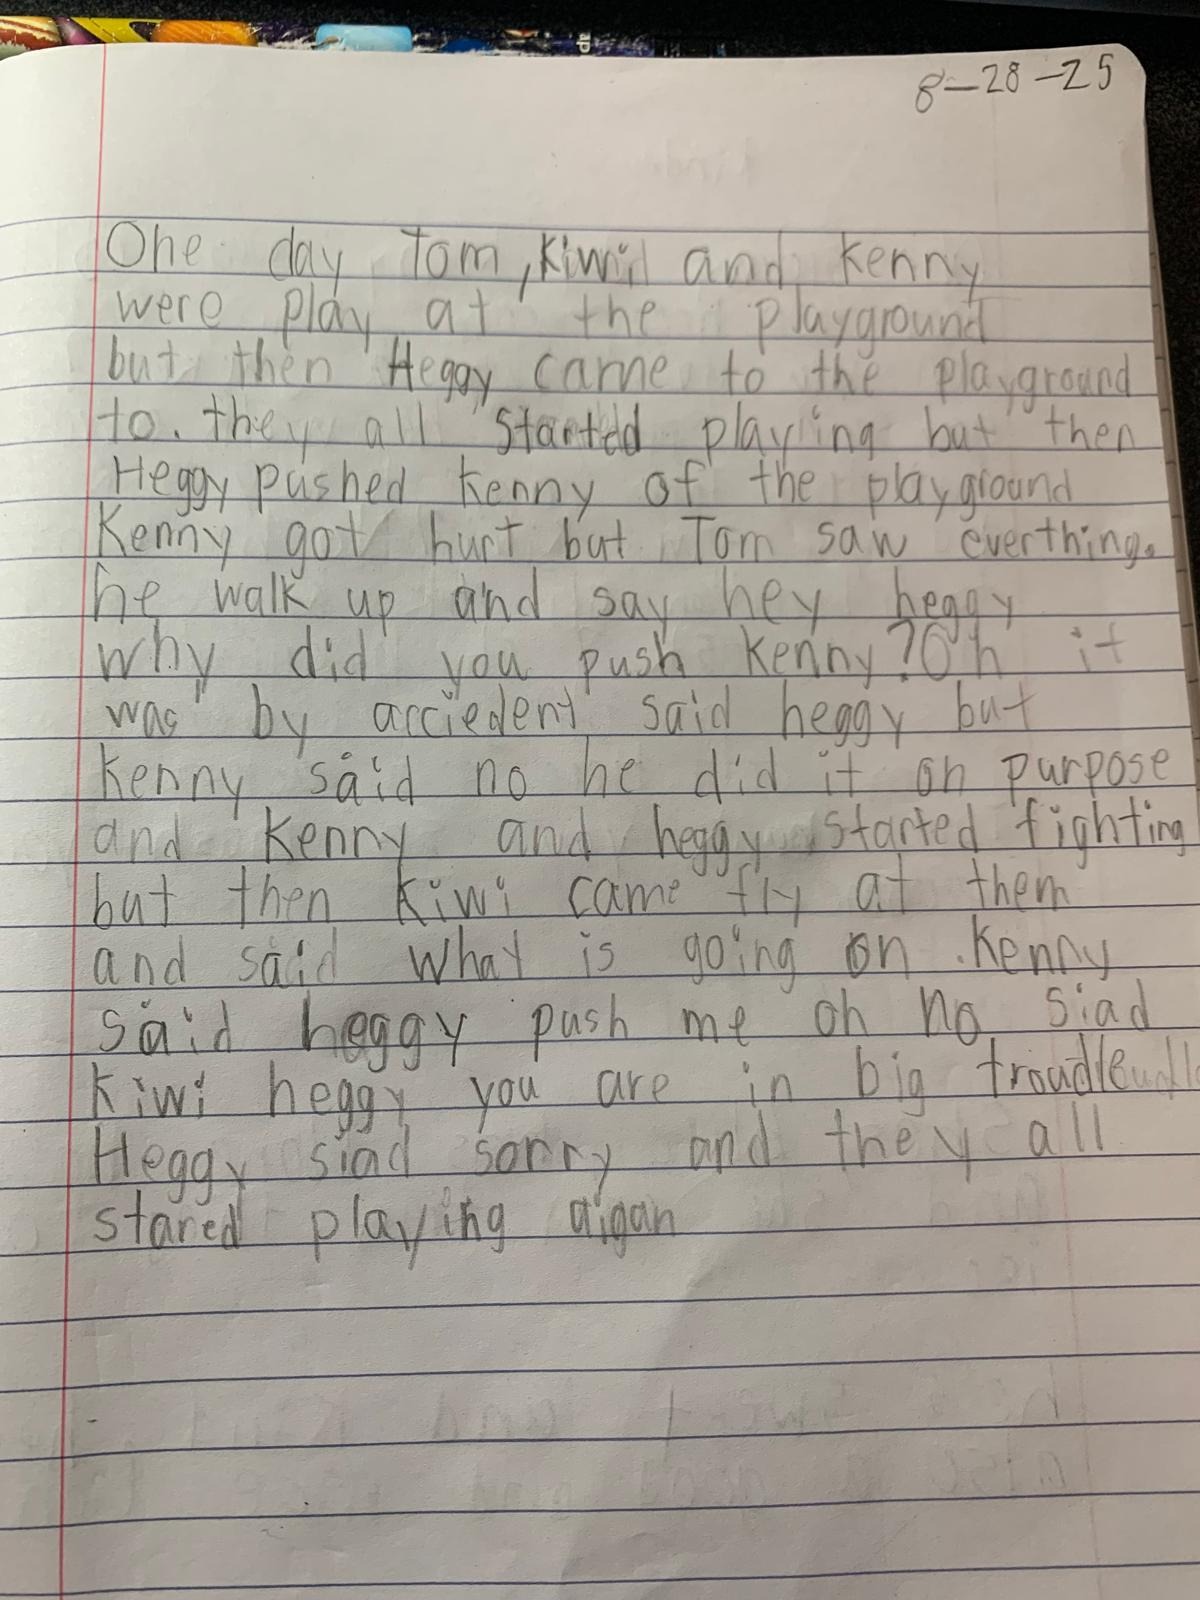 8-28-25
One day Tom, Kiwi and Kenny
were play at the playground
but then Heggy came to the playground
to. they all started playing but then
Heggy pushed Kenny of the playground
Kenny got hurt but Tom saw everthing.
he walk up and say hey heggy
why did you push Kenny? Oh it
was by acciedent said heggy but
Kenny said no he did it on purpose
and Kenny and heggy started fighting
but then Kiwi came fly at them
and said what is going on. Kenny
said heggy push me oh no siad
Kiwi heggy you are in big
Heggy siad sorry and they all
stared playing aigan